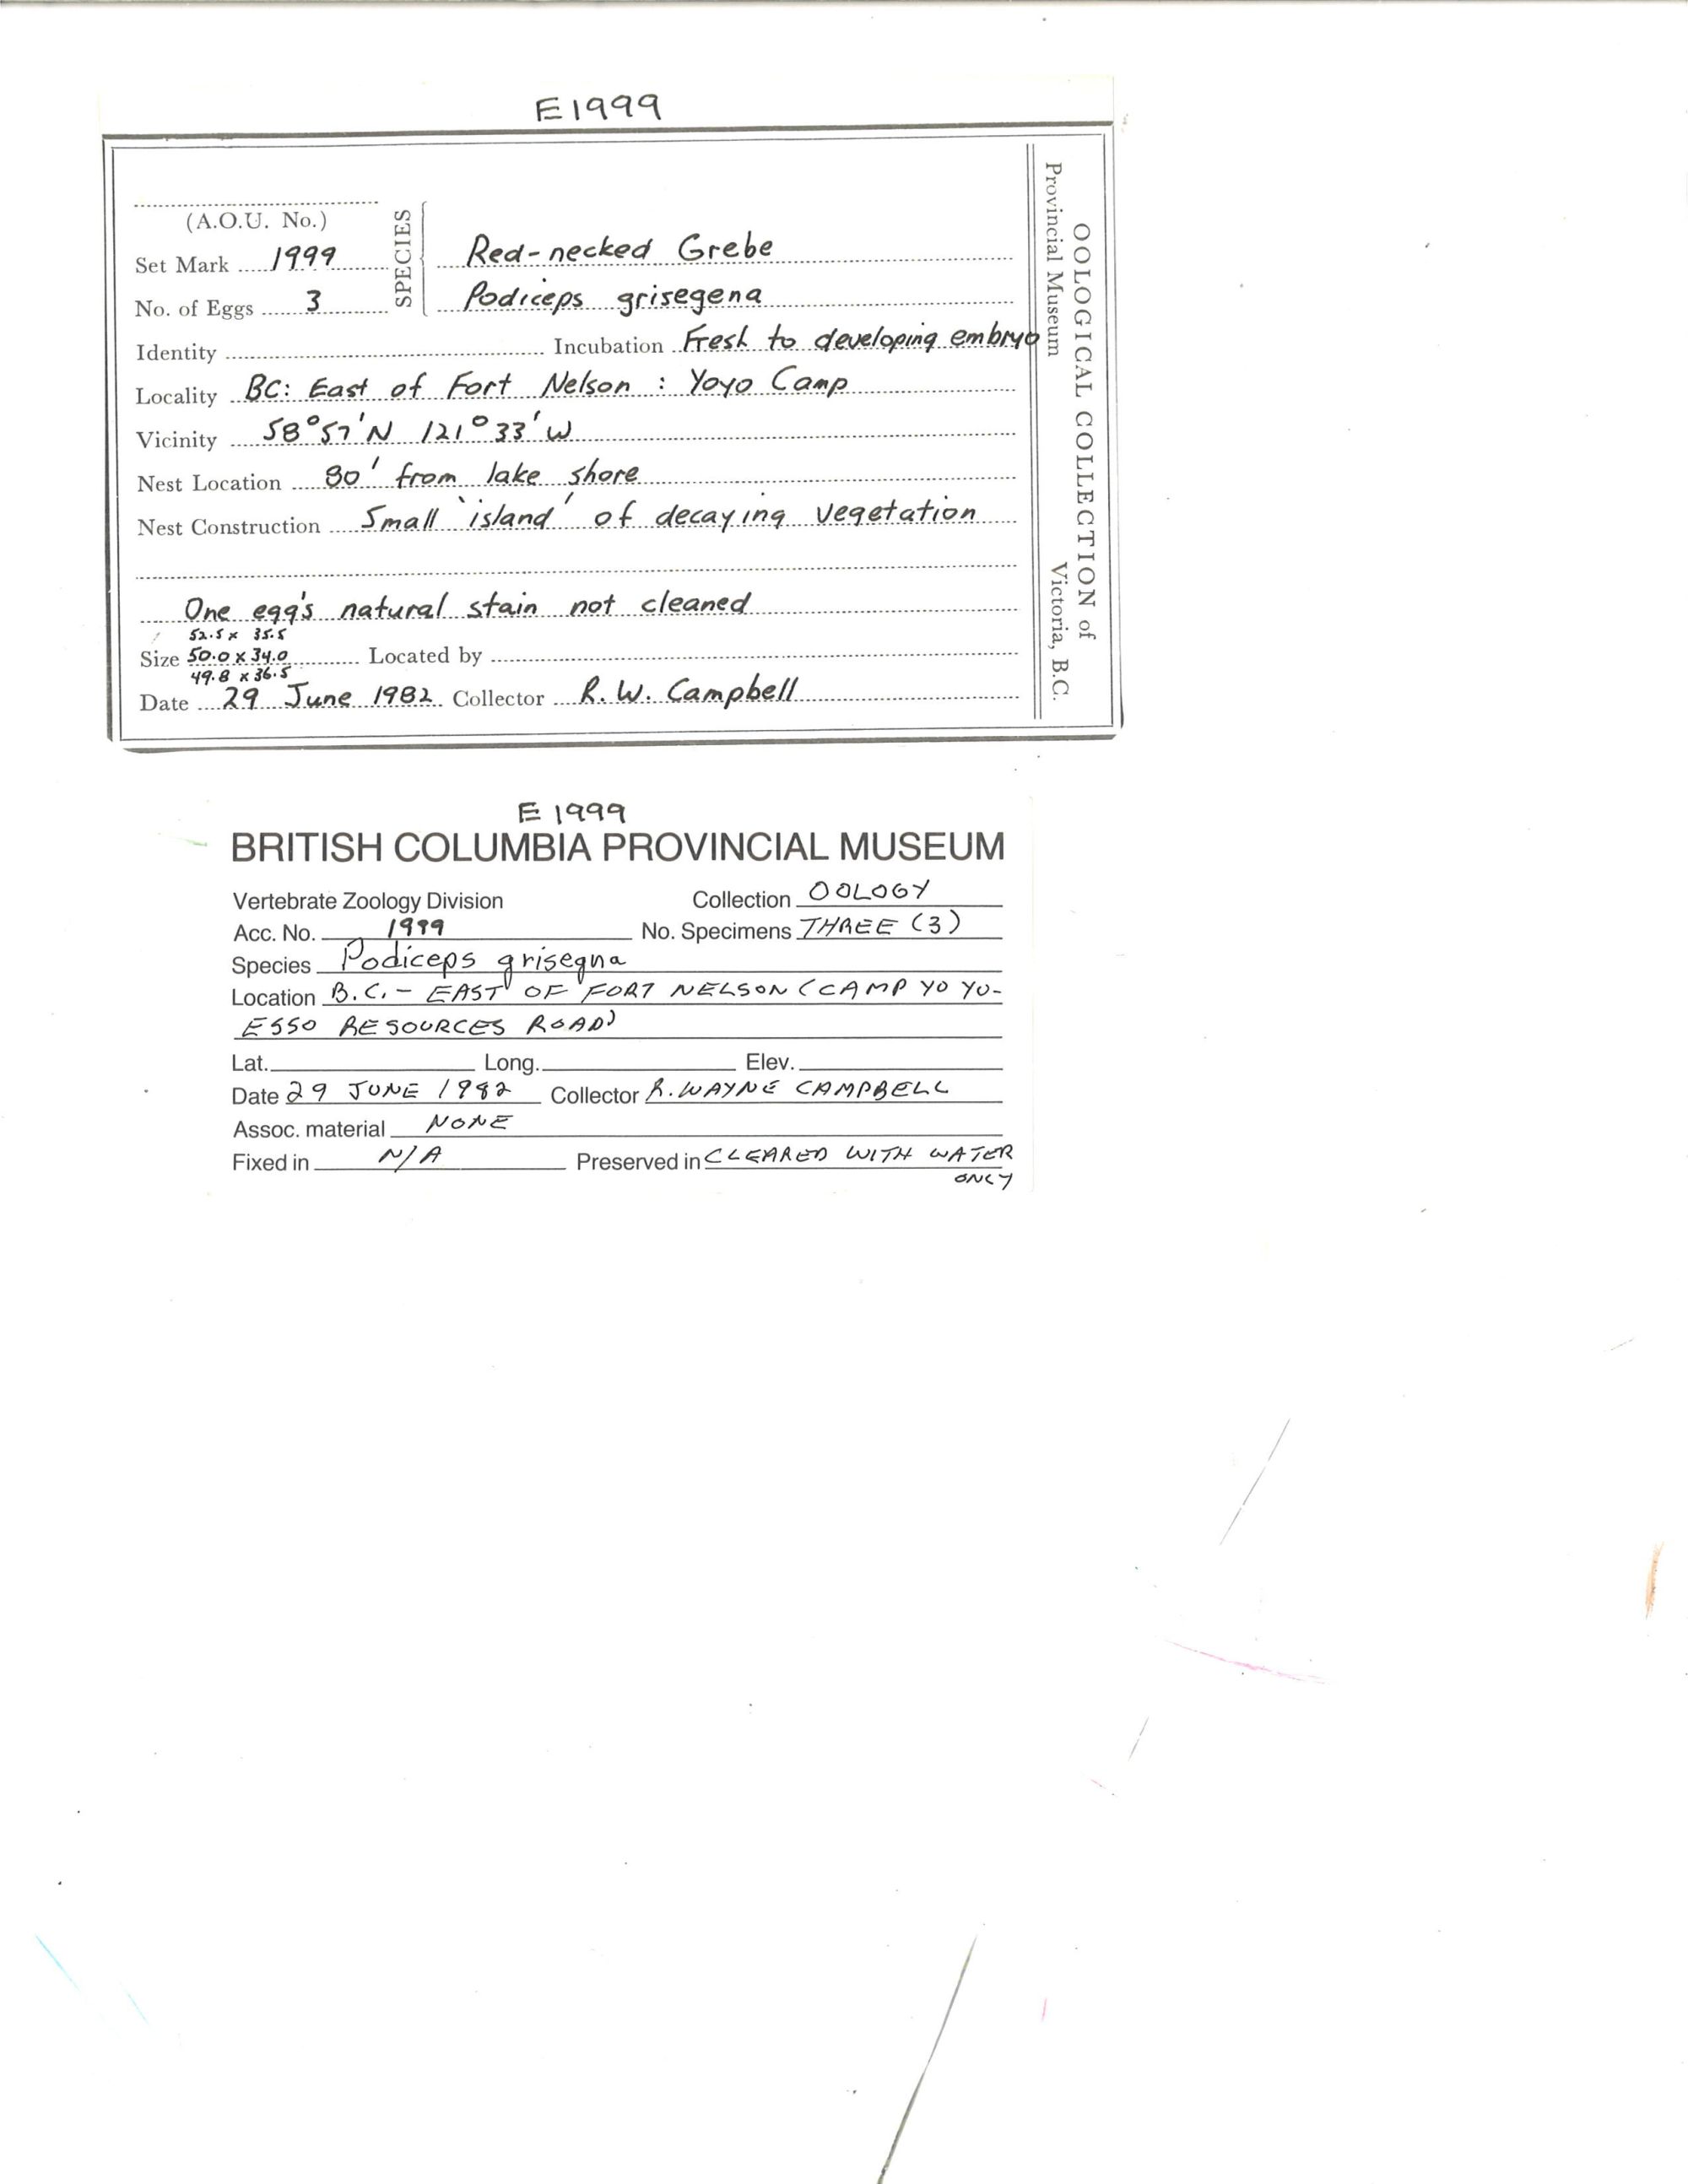 E1999
(A.O.U. No.)
Set Mark 1999
No. of Eggs 3
SPECIES
Red-necked Grebe
Podiceps grisegena
Identity Incubation Fresh to developing embryo
Locality BC: East of Fort Nelson : Yoyo Camp
Vicinity 58°57'N 121°33'W
Nest Location 80' from lake shore
Nest Construction Small 'island' of decaying vegetation
One egg's natural stain not cleaned
52.5 x 35.5
Size 50.0 x 34.0 Located by
49.8 x 36.5
Date 29 June 1982 Collector R.W. Campbell
OOLOGICAL COLLECTION of
Provincial Museum Victoria, B.C.
E 1999
BRITISH COLUMBIA PROVINCIAL MUSEUM
Vertebrate Zoology Division Collection OOLOGY
Acc. No. 1999 No. Specimens THREE (3)
Species Podiceps grisegna
Location B.C. - EAST OF FORT NELSON (CAMP YO YO-
ESSO RESOURCES ROAD)
Lat. Long. Elev.
Date 29 JUNE 1982 Collector R. WAYNE CAMPBELL
Assoc. material NONE
Fixed in N/A Preserved in CLEARED WITH WATER
ONLY